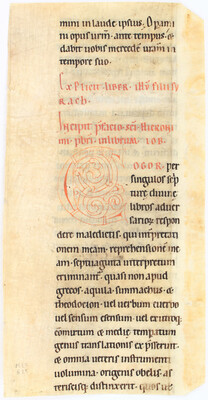 mini in laude ipsius. Opami
ni opus urm̄. ante tempus. &
dabit uobis mercedē urām in
tempore suo.
Explicit liber. ihū filii sir
ach.
Incipit p̄facio sc̄i Hieroni
mi. pbri. in librum iob.
COGOR. per
singulos sc̄p
ture diuine
libros aduer
sarioȝ respon
dere maledictis. qui int̄p̄tati
onem meam. reprehensionē int̄
am. septuaginta int̄pretum
criminant̄. quasi non apud
grecos. aquila. simmachus. &
theodocion. uel uerbum e uerbo
uel sensum e sensu. uel ex utroq;
cōmixtum & medie temperatum
genus translationis exp̄sserint.
& omnia ueteris instrumenti
uolumina. origenes obelis. as
teriscisq; distinxerit. quos uł